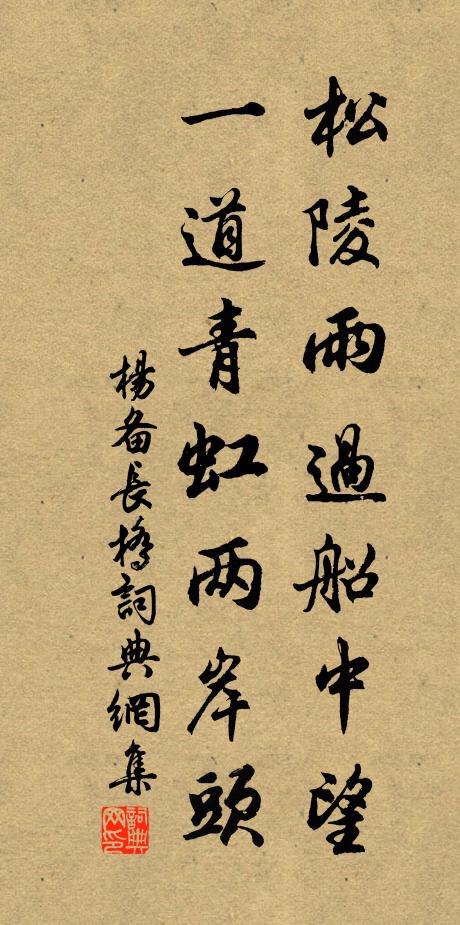 松陵雨過船中望
一道青虹两岸頭
楊备長橋詞典網集
詞典网印